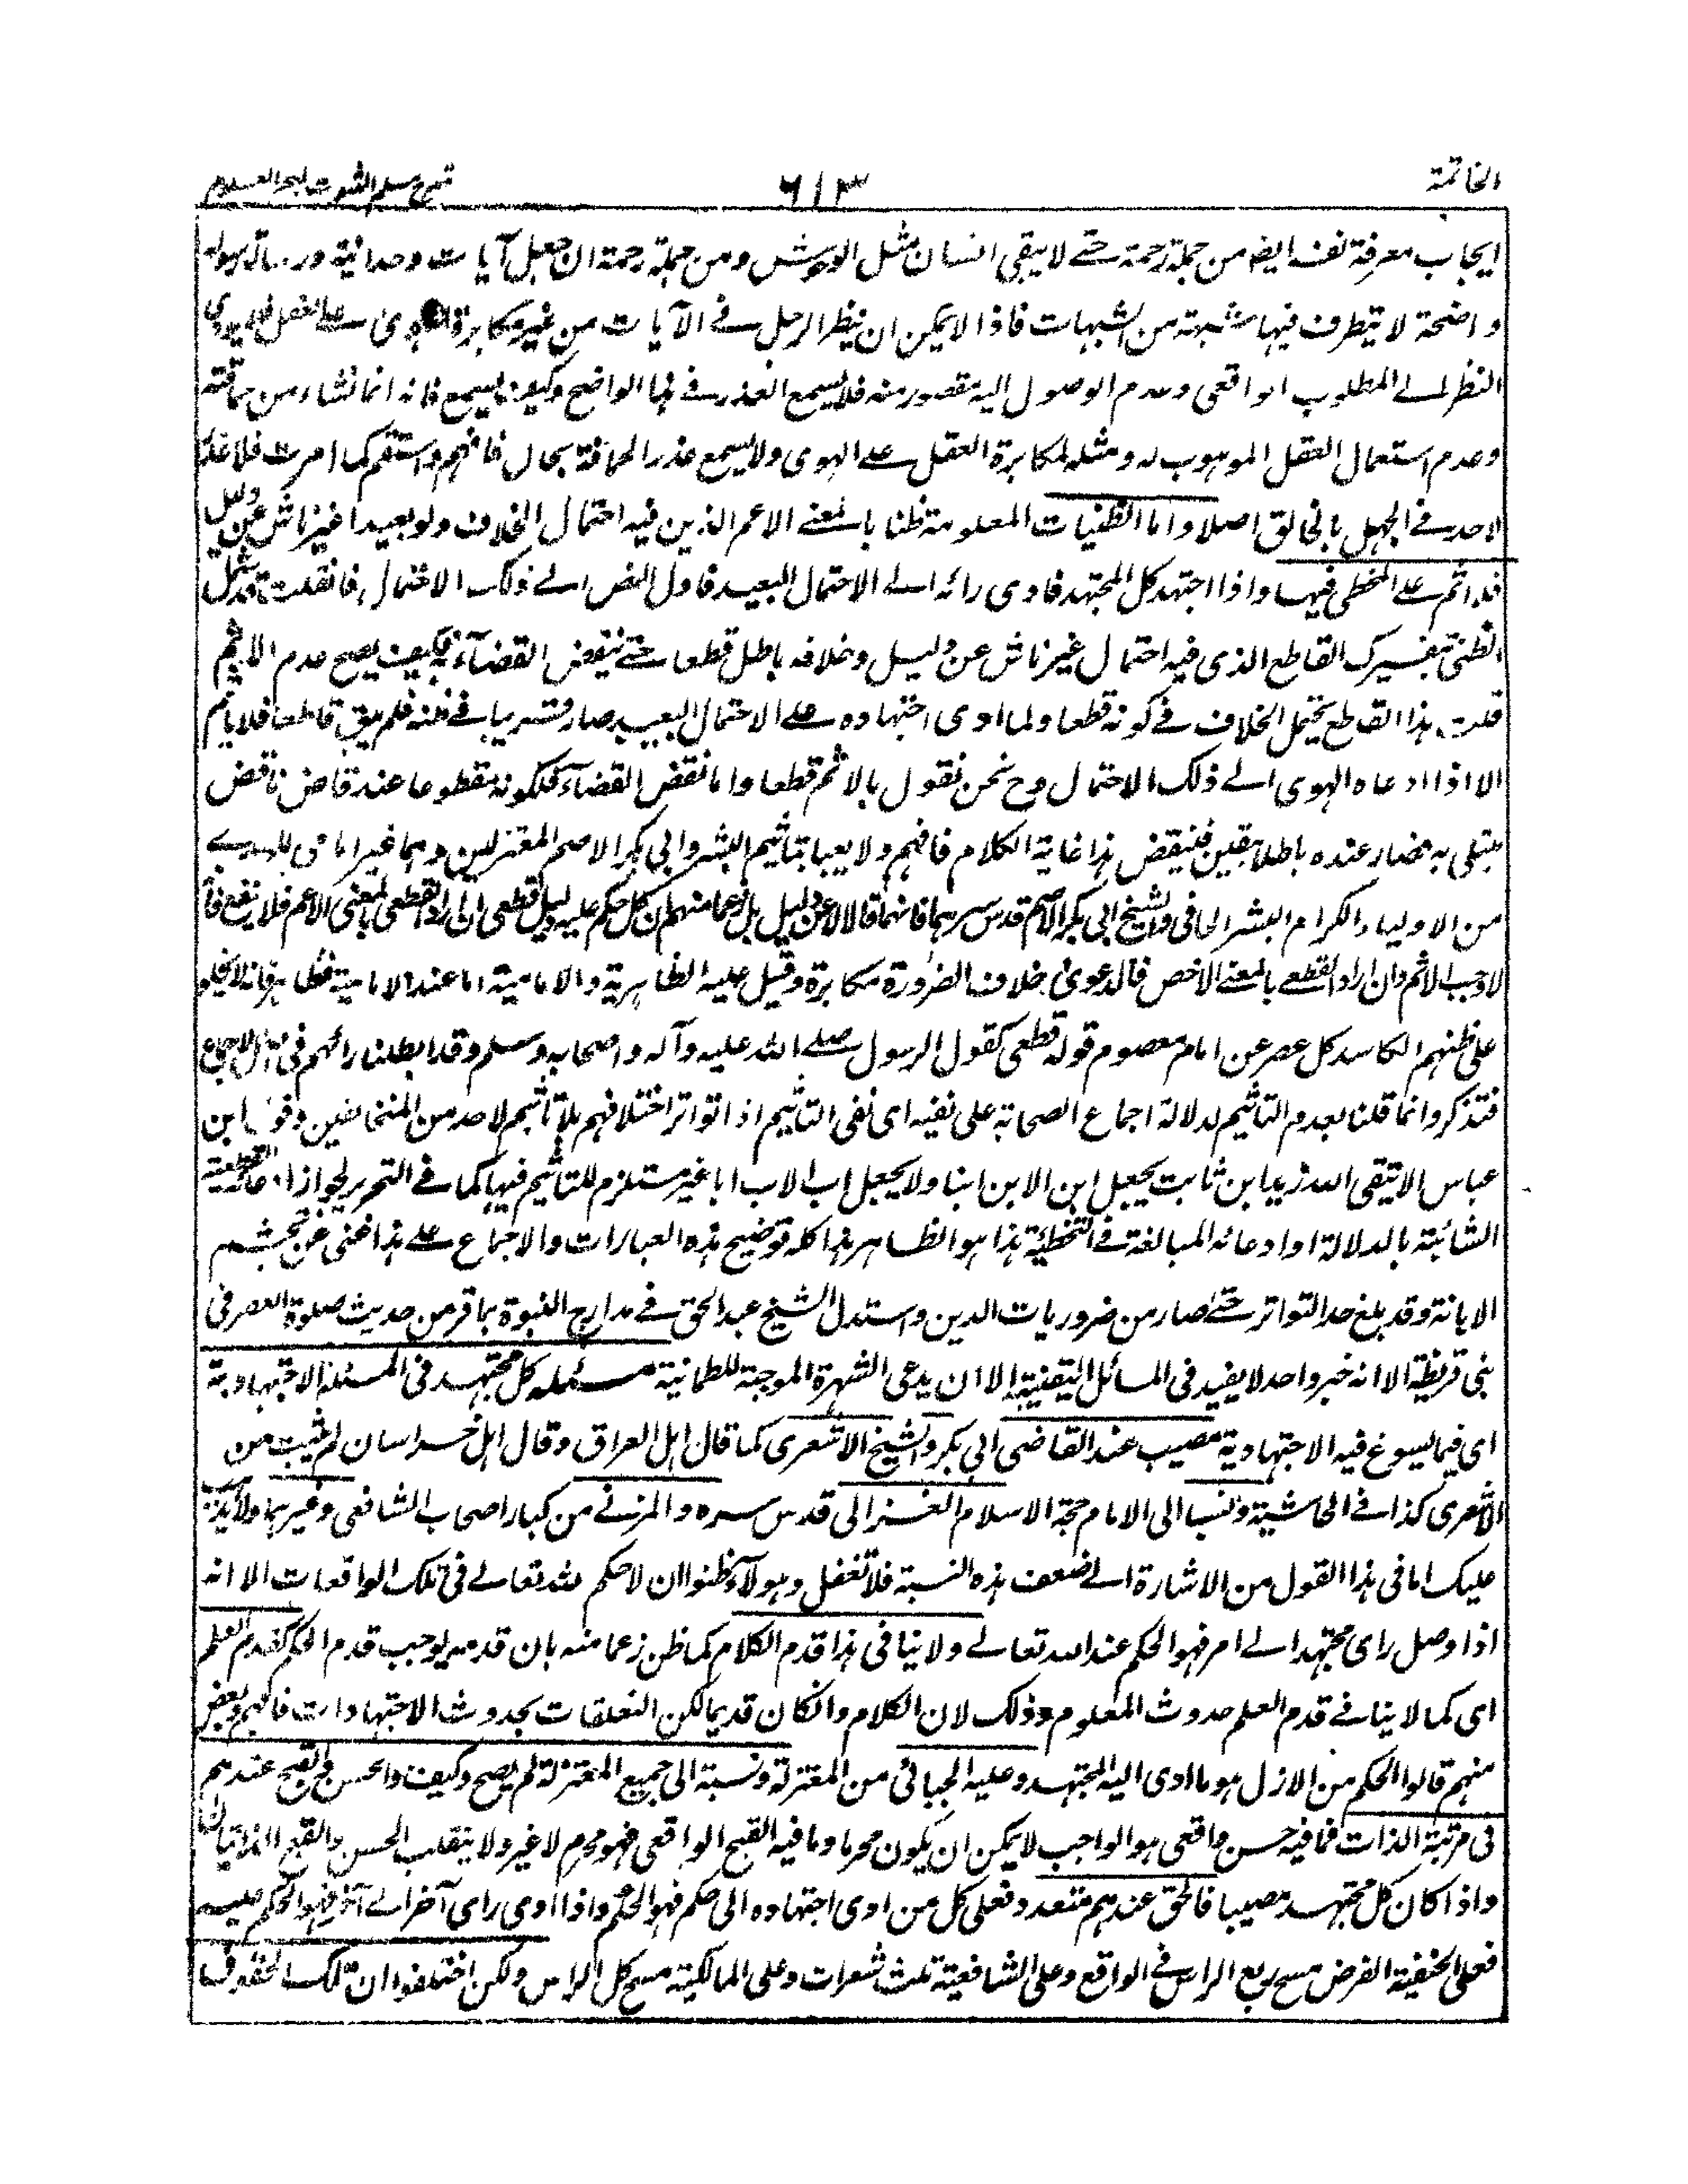 الخاتمة
٦١٣
شرح مسلم الثبوت لبحر العلوم
ايجاب معرفة نفسه ايضا من جملة رحمة حتى لا يبقى انسان مثل الوحوش ومن جملة رحمة ان جعل آيات وحدانيته ورسالة رسوله
واضحة لا يتطرق فيها شبهة من الشبهات فاذا لا يمكن ان ينظر الرجل في الآيات من غير مكابرة الهوى على العقل
النظر الى المطلوب الواقعى وعدم الوصول اليه مقصور منه فلا يسمع العذر في هذا الواضح وكيف يسمع فانه انما نشاء من حماقته
وعدم استعمال العقل الموهوب له ومثله لمكابرة العقل على الهوى ولا يسمع عذر الحماقة بحال فافهم واستقم كما امرت فلا عذر
لاحد في الجهل بالخالق اصلا واما الظنيات المعلومة ظنا بالمعنى الاعم الذين فيه احتمال الخلاف ولو بعيدا غير ناش عن دليل
فلا اثم على المخطى فيها واذا اجتهد كل المجتهد فادى رائه الى الاحتمال البعيد فاول النص الى ذلك الاحتمال فان قلت قد شمل
الظنى بتفسيرك القاطع الذى فيه احتمال غير ناش عن دليل وخلافه باطل قطعا حتى ينقض القضاء به فكيف يصح عدم الاثم
قلت هذا القاطع يحتمل الخلاف في كونه قطعا ولما ادى اجتهاده على الاحتمال البعيد صار قريبا في ظنه فلم يبق قاطعا فلا ياثم
الا اذا ادعاه الهوى الى ذلك الاحتمال وح نحن نقول بالاثم قطعا واما نقض القضاء فلكونه مقطوعا عند قاض ناقض
مبتلى به فصار عنده باطلا بيقين فينقض هذا غاية الكلام فافهم ولا يعبا بتاثيم البشر وابى بكر الاصم المعتزليين وهما غير امامى
من الاولياء الكرام البشر الحافى والشيخ ابى بكر الاصم قدس سرهما فانهما قالا لا عن دليل بل زعما منهم ان كل حكم عليه دليل قطعى ان اراد القطعى بالمعنى الاعم فلا ينفع فانه
لا وجب الاثم وان اراد القطعى بالمعنى الاخص فالدعوى خلاف الضرورة مكابرة وقيل عليه الظاهرية والامامية اما عند الامامية فظاهر فانه لا يخلو
على ظنهم الكاسد كل عصر عن امام معصوم قوله قطعى كقول الرسول صلى الله عليه وآله واصحابه وسلم وقد ابطلنا رائهم في الاجماع
فتذكر وانما قلنا بعدم التاثيم لدلالة اجماع الصحابة على نفيه اى نفى التاثيم اذا تواتر اختلافهم بلا تاثيم لاحد من المتخالفين وقول ابن
عباس الا يتقى الله زيد ابن ثابت يجعل ابن الابن ابنا ولا يجعل اب الاب ابا غير مستلزم للتاثيم فيها كما في التحرير لجواز القطعية
الشائبة بالدلالة او ادعائه المبالغة في التخطئة هذا هو الظاهر هذا كله توضيح هذه العبارات والاجماع على هذا غنى عن تجشم
الابانة وقد بلغ حد التواتر حتى صار من ضروريات الدين واستدل الشيخ عبد الحق في مدارج النبوة بما قر من حديث صلوة العصر فى
بنى قريظة الا انه خبر واحد لا يفيد فى المسائل اليقينية الا ان يدعى الشهرة الموجبة للطمانية مسئله كل مجتهد فى المسئلة الاجتهادية
اى فيما يسوغ فيه الاجتهادية مصيب عند القاضى ابى بكر والشيخ الاشعرى كما قال اهل العراق وقال اهل خراسان لم يثبت من
الاشعرى كذا في الحاشية ونسب الى الامام حجة الاسلام الغزالى قدس سره والمزنى من كبار اصحاب الشافعى وغيرهما ولا يذهب
عليك اما فى هذا القول من الاشارة الى ضعف هذه النسبة فلا تغفل وهولاء ظنوا ان لا حكم لله تعالى فى تلك الواقعات الا انه
اذا وصل راى مجتهد الى امر فهو الحكم عند الله تعالى ولا ينافى هذا قدم الكلام كما ظن زعما منه بان قدمه يوجب قدم الحكم كقدم العلم
اى كما لا ينافى قدم العلم حدوث المعلوم وذلك لان الكلام وان كان قديما لكن التعلقات بحدوث الاجتهادات فافهم وبعض
منهم قالوا الحكم من الازل هو ما ادى اليه المجتهد وعليه الجبائى من المعتزلة ونسبة الى جميع المعتزلة لم يصح وكيف والحسن والقبح عندهم
فى مرتبة الذات فما فيه حسن واقعى هو الواجب لا يمكن ان يكون محرما وما فيه القبح الواقعى فهو محرم لا غير ولا ينقلب الحسن والقبح الذاتيان
واذا كان كل مجتهد مصيبا فالحق عندهم متعدد فعلى كل من ادى اجتهاده الى حكم فهو الحكم واذا ادى راى آخر الى آخر فهو الحكم عليه
فعلى الحنفية الفرض مسح ربع الراس في الواقع وعلى الشافعية ثلث شعرات وعلى المالكية مسح كل الراس ولكن اختلفوا ان تلك الحقوق